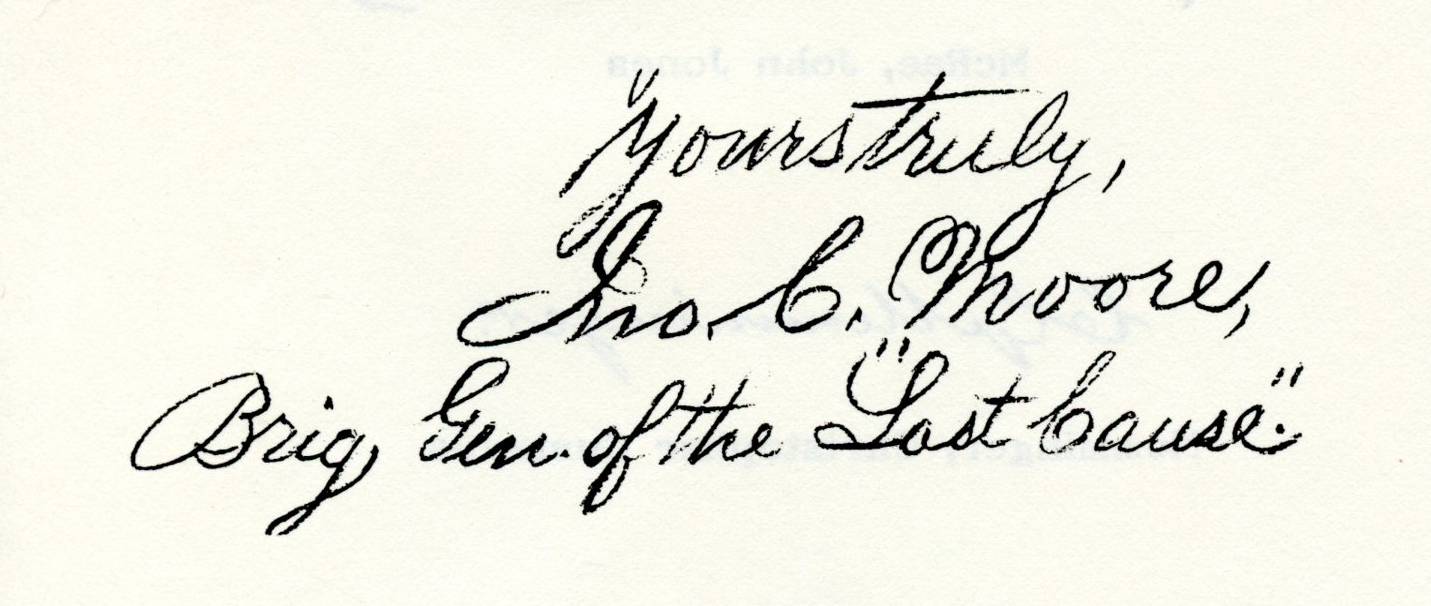 McRae, John Jones
Yours truly,
Jno. C. Moore,
Brig, Gen. of the "Lost Cause."